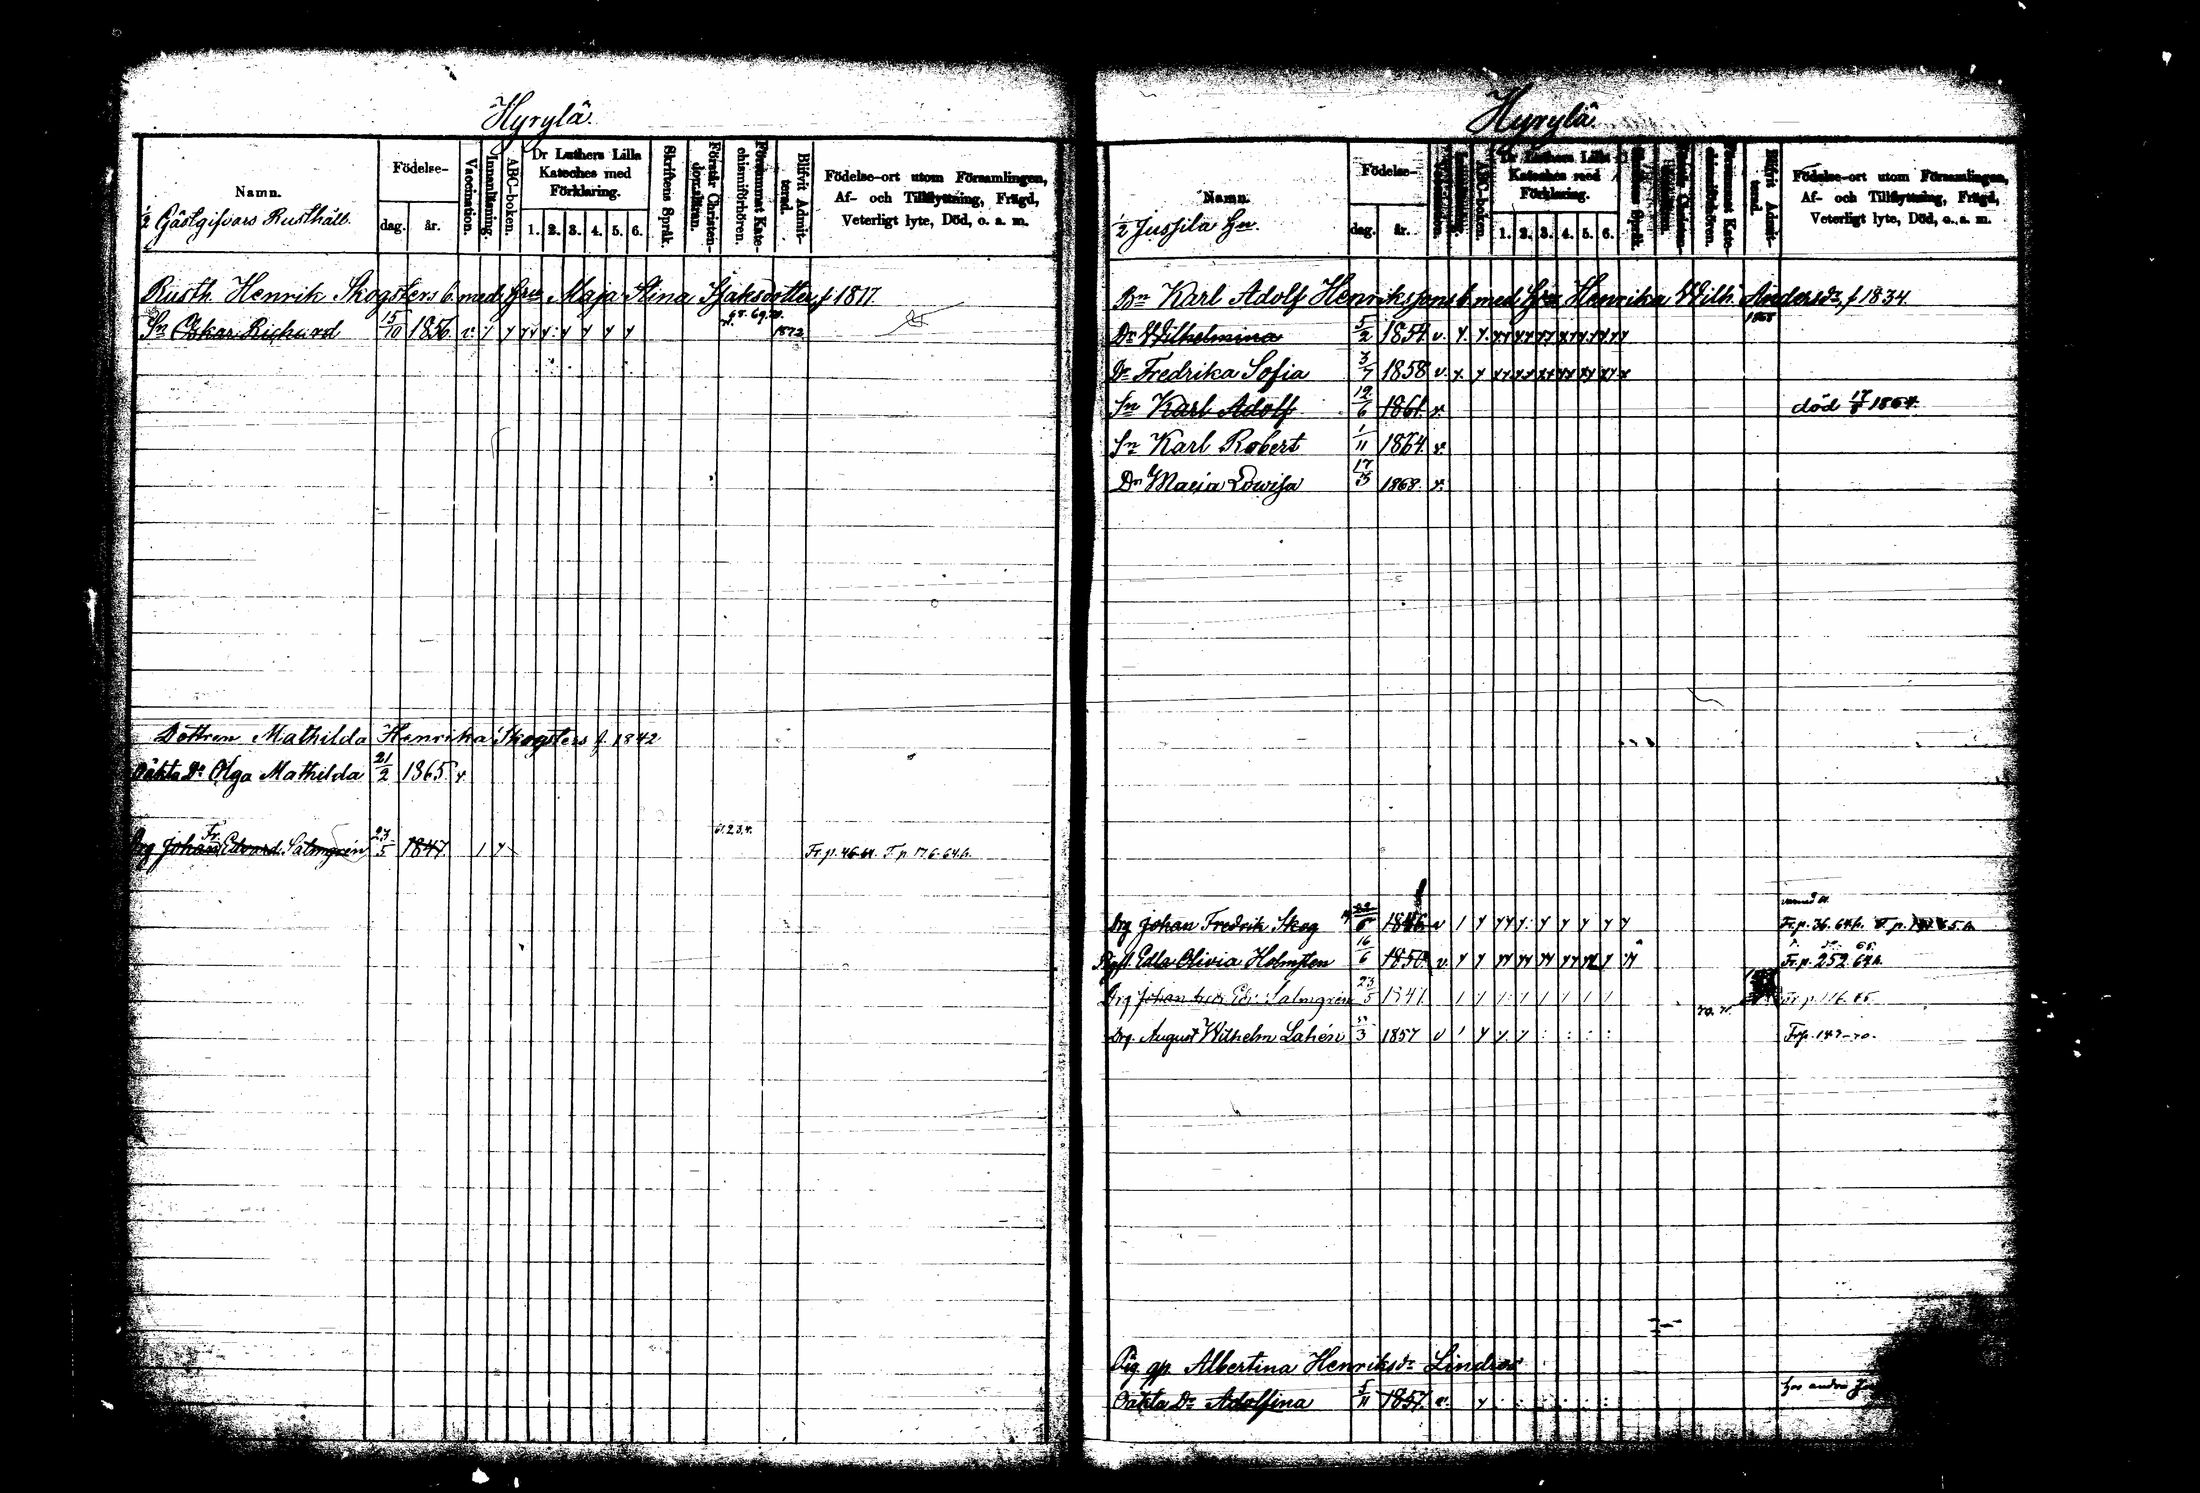 Hyrylä.
Namn.
½ Gästgifvars Rusthåll.
Födelse-
dag.
år.
Vaccination.
Innanläsning.
ABC-boken.
Dr Luthers Lilla Kateches med Förklaring.
1. 2. 3. 4. 5. 6.
Skriftens Språk.
Förstår Christendomsläran.
Försummat Katechismiförhören.
Blifvit Admitterad.
Födelse-ort utom Församlingen,
Af- och Tillflyttning, Frägd,
Veterligt lyte, Död, o. s. m.
Rusth. Henrik Skogsters b. med Hru Maja Stina Isaksdotter, f 1817.
Sn Oskar Richard 15/10 1856. v. 68. 69. 70. 1872
Dottren Mathilda Henrika Skogsters f. 1842
Oäkta Dr Olga Mathilda 21/2 1865 v.
Drg Johan Fr. Edvard Salmgrén 23/5 1847 61.2.3.4. Fr. p. 46-64. T. p 176-64.h.
Hyrylä
Namn.
½ Jussila Hn.
Födelse-
dag.
år.
ABC-boken.
Dr Luthers Lilla Kateches med Förklaring.
1. 2. 3. 4. 5. 6.
Skriftens Språk.
Försummat Katechismiförhören.
Blifvit Admitterad.
Födelse-ort utom Församlingen,
Af- och Tillflyttning, Frägd,
Veterligt lyte, Död, o. s. m.
Bn Karl Adolf Henrikssons b. med Hru Henrika Wilh. Andersdr, f 1834.
Dr Wilhelmina 5/2 1854. v. 1868
Dr Fredrika Sofia 3/7 1858 v.
Sn Karl Adolf 12/6 1861. v. död 17/8 1864.
Sn Karl Robert 1/11 1864. v.
Dr Maria Lovisa 17/5 1868. v.
Drg Johan Fredrik Skog 22/5 1846. v Fr. p. 36. 64h.
Pig. Edla Olivia Holmsten 16/6 1850 v. Fr. p. 252. 64h.
Drg Johan Fr. Ed. Salmgrén 23/5 1847. Fr. p. 176. 65.
Drg. August Wilhelm Lahén 3 1857 v Frp. 147-70.
Pig gp. Albertina Henriksdr Lindroos
Oäkta Dr Adolfina 5/11 1857. v. hos andra